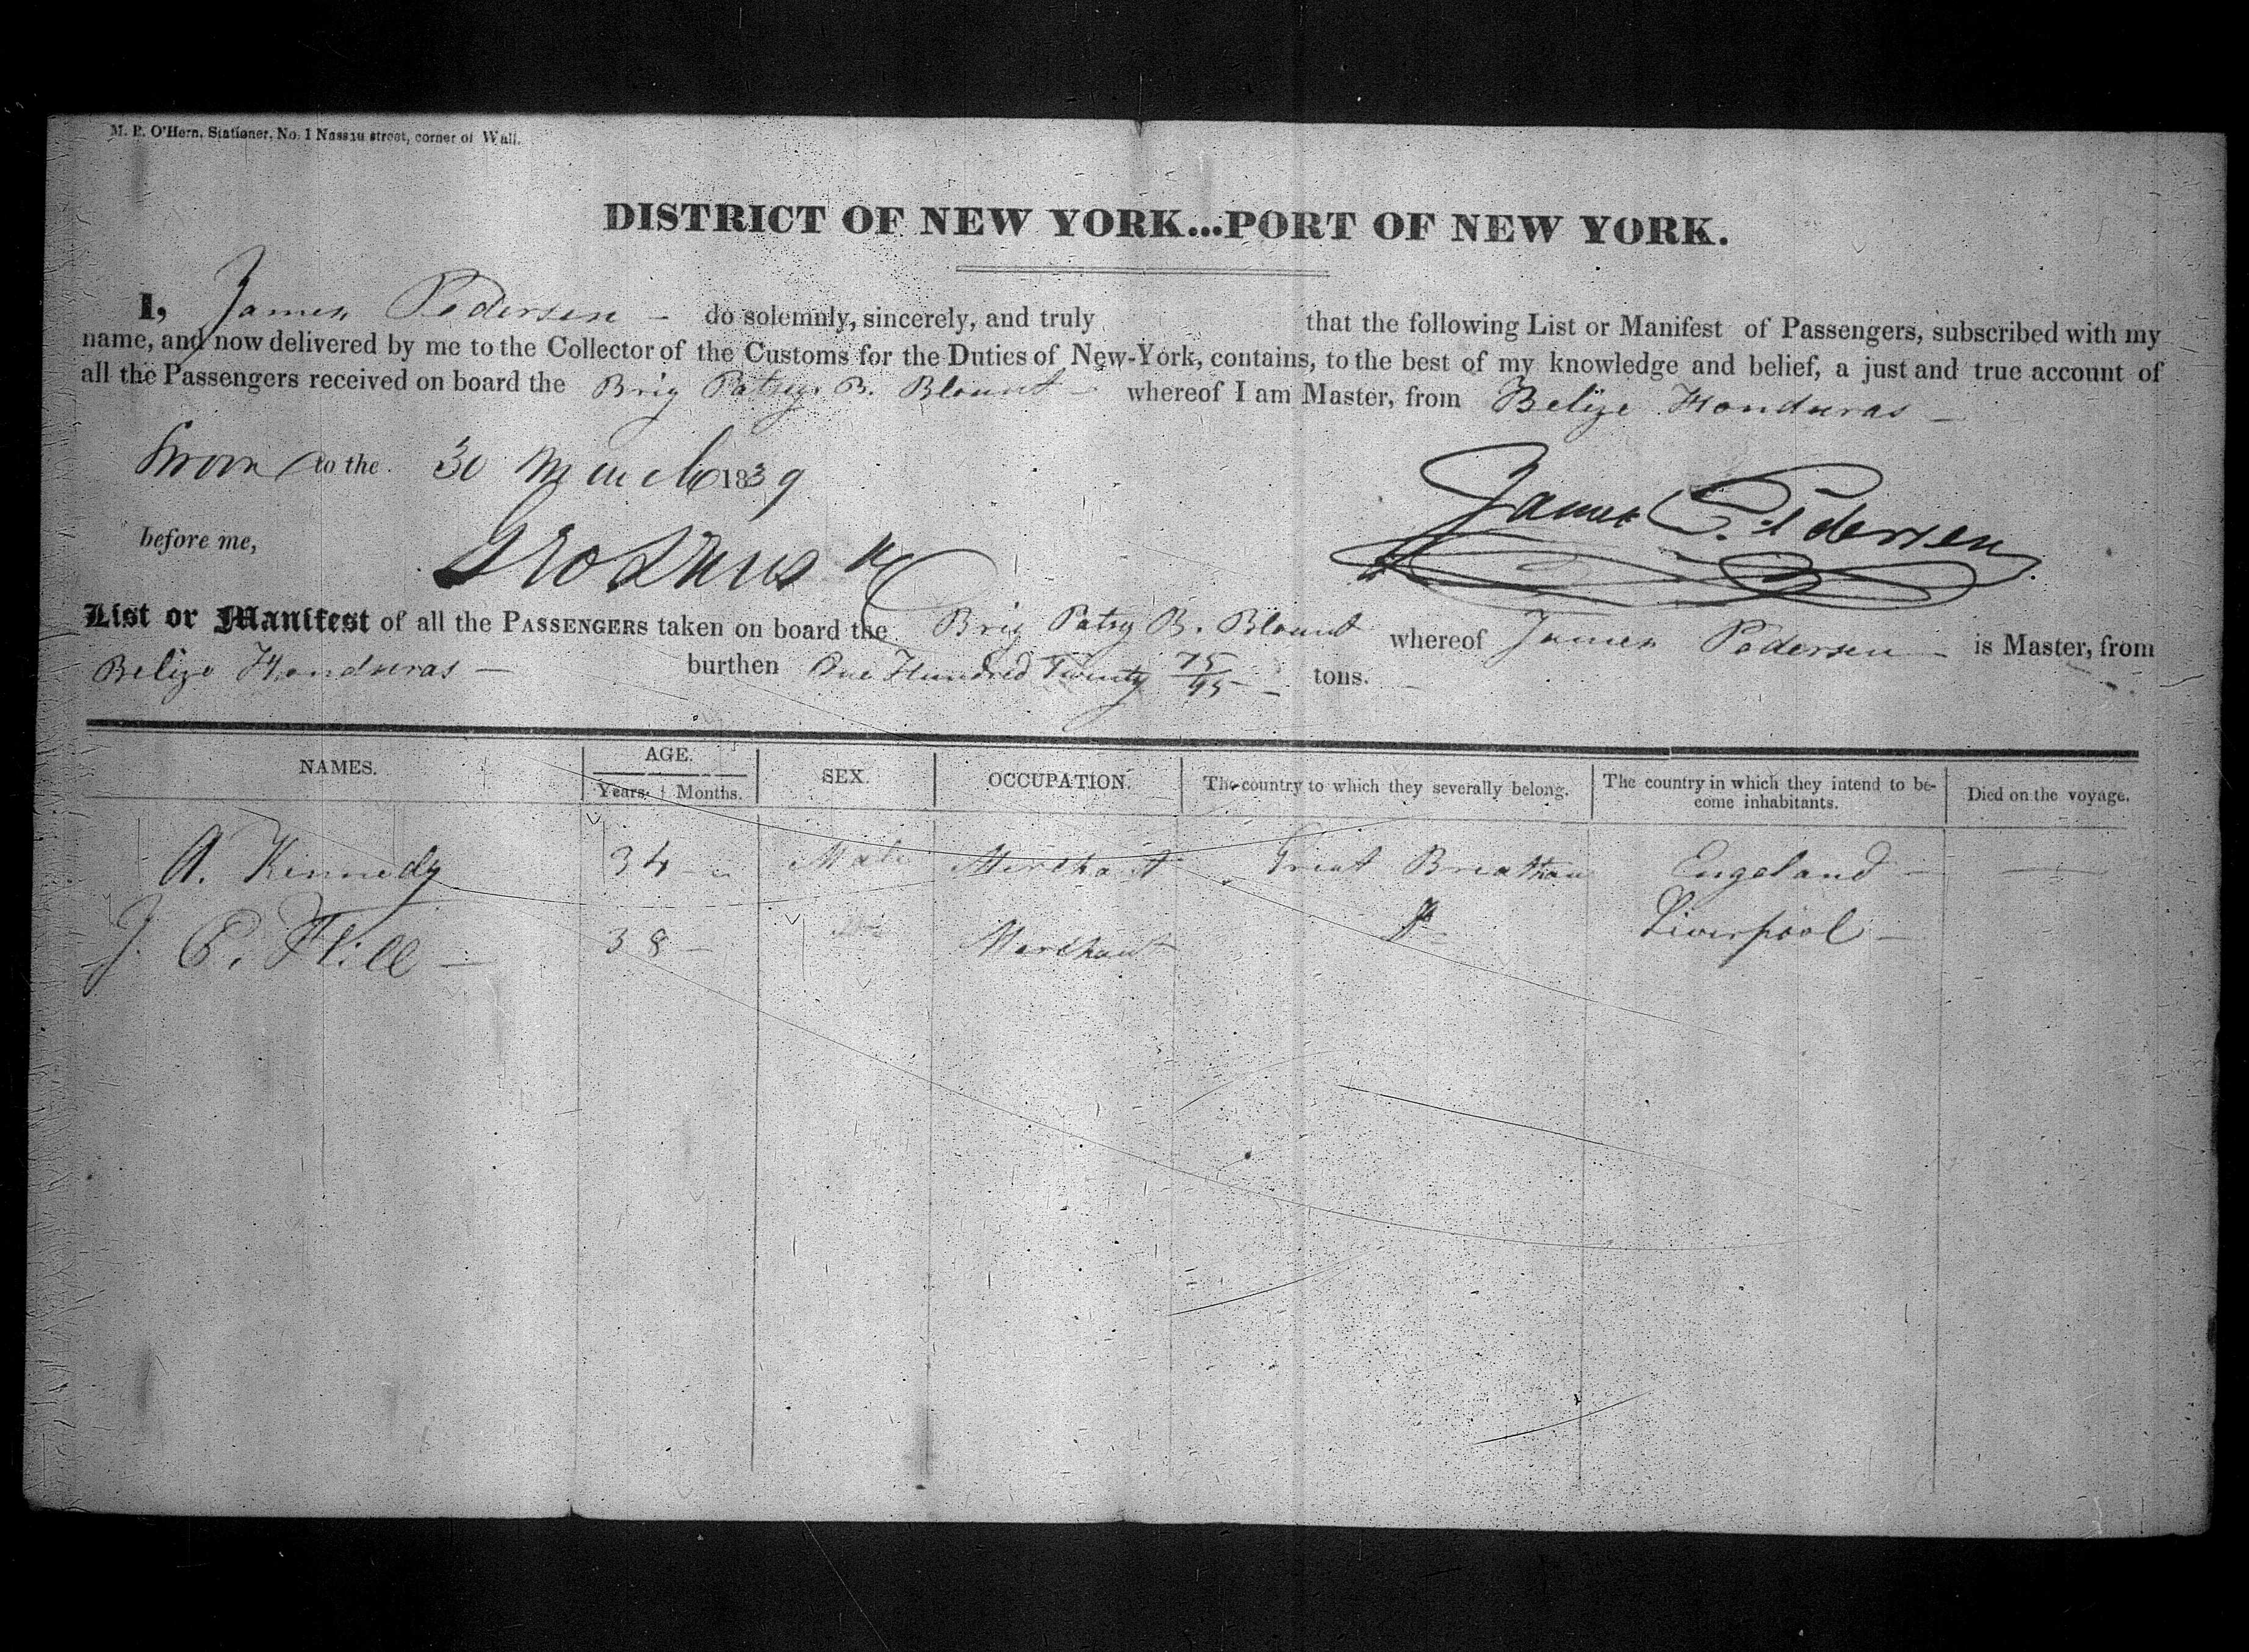 M. P. O'Hern, Stationer, No. 1 Nassau street, corner of Wall.
DISTRICT OF NEW YORK...PORT OF NEW YORK.
I, James Pedersen - do solemnly, sincerely, and truly that the following List or Manifest of Passengers, subscribed with my
name, and now delivered by me to the Collector of the Customs for the Duties of New-York, contains, to the best of my knowledge and belief, a just and true account of
all the Passengers received on board the Brig Patsy B. Blount - whereof I am Master, from Belize Honduras -
Sworn to the 30 March 1839
James Pedersen
before me,
List or Manifest of all the PASSENGERS taken on board the Brig Patsy B. Blount whereof James Pedersen - is Master, from
Belize Honduras - burthen One Hundred Twenty 75/95 - tons.
NAMES. AGE. SEX. OCCUPATION. The country to which they severally belong. The country in which they intend to be-
come inhabitants. Died on the voyage.
Years. Months.
A. Kennedy 34 - Male Merchant Great Breathan Engeland - —
J. P. Hill - 38 - Merchant Liverpool -